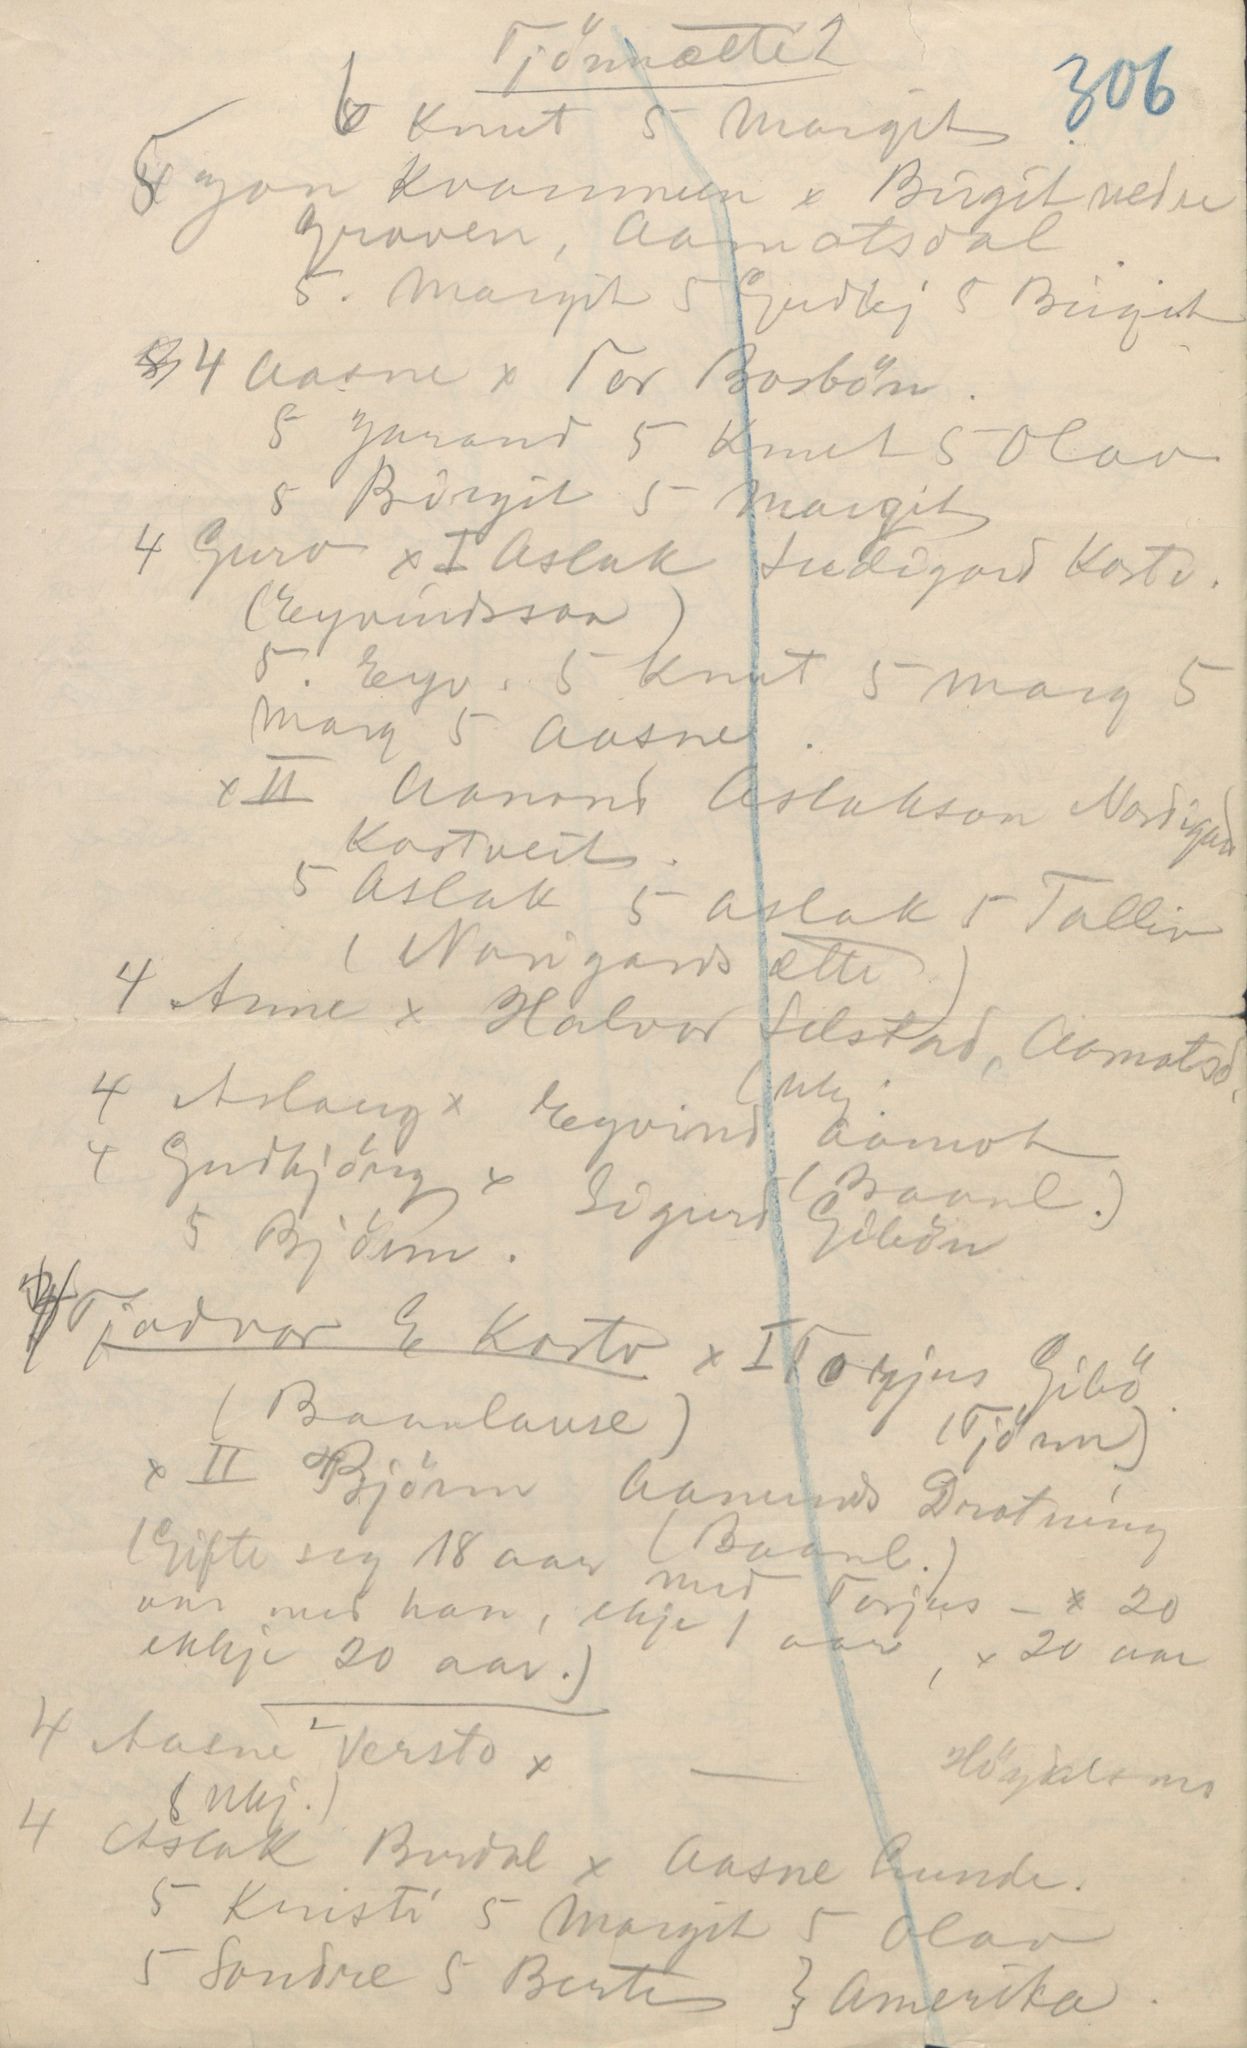 Tjönnætti 2
306
x Knut 5 Margit
x Jon Kvammen x Birgit nedre
Groven, Aamotsdal
5. Margit 5 Gudbj 5 Birgit
4 Aasne x Tor Bosbön.
5 Jorand 5 Knut 5 Olav
5 Birgit 5 Margit
4 Guro x I Aslak Sudigard Kostv.
(Eyvindsson)
5. Eyv. 5 Knut 5 Marg 5
Marg 5 Aasne.
x II Aanond Aslakson Nordigard
Kostveit.
5 Aslak 5 Aslak 5 Talliv
(Norigards ætti)
4 Anne x Halvor Selstad, Aamotsd.
(Ukj.
4 Aslaug x Eyvind Aamot
(Baanl.)
4 Gudbjörg x Sigurd Gibön
5 Björn.
4 Tjodvor E Kostv x I Torjus Gibö
(Baanlause) (Tjönn)
x II Björn Aanunds Drotning
(Baanl.)
(Gifte seg 18 aar med Torjus – x 20
aar med han, ekje 1 aar, x 20 aar
ekkje 20 aar.)
4 Aasne Versto x — Höydalsmo
(Ukj.)
4 Aslak Burdal x Aasne Gunde.
5 Kristi 5 Margit 5 Olav
5 Sondre 5 Berte } Amerika.